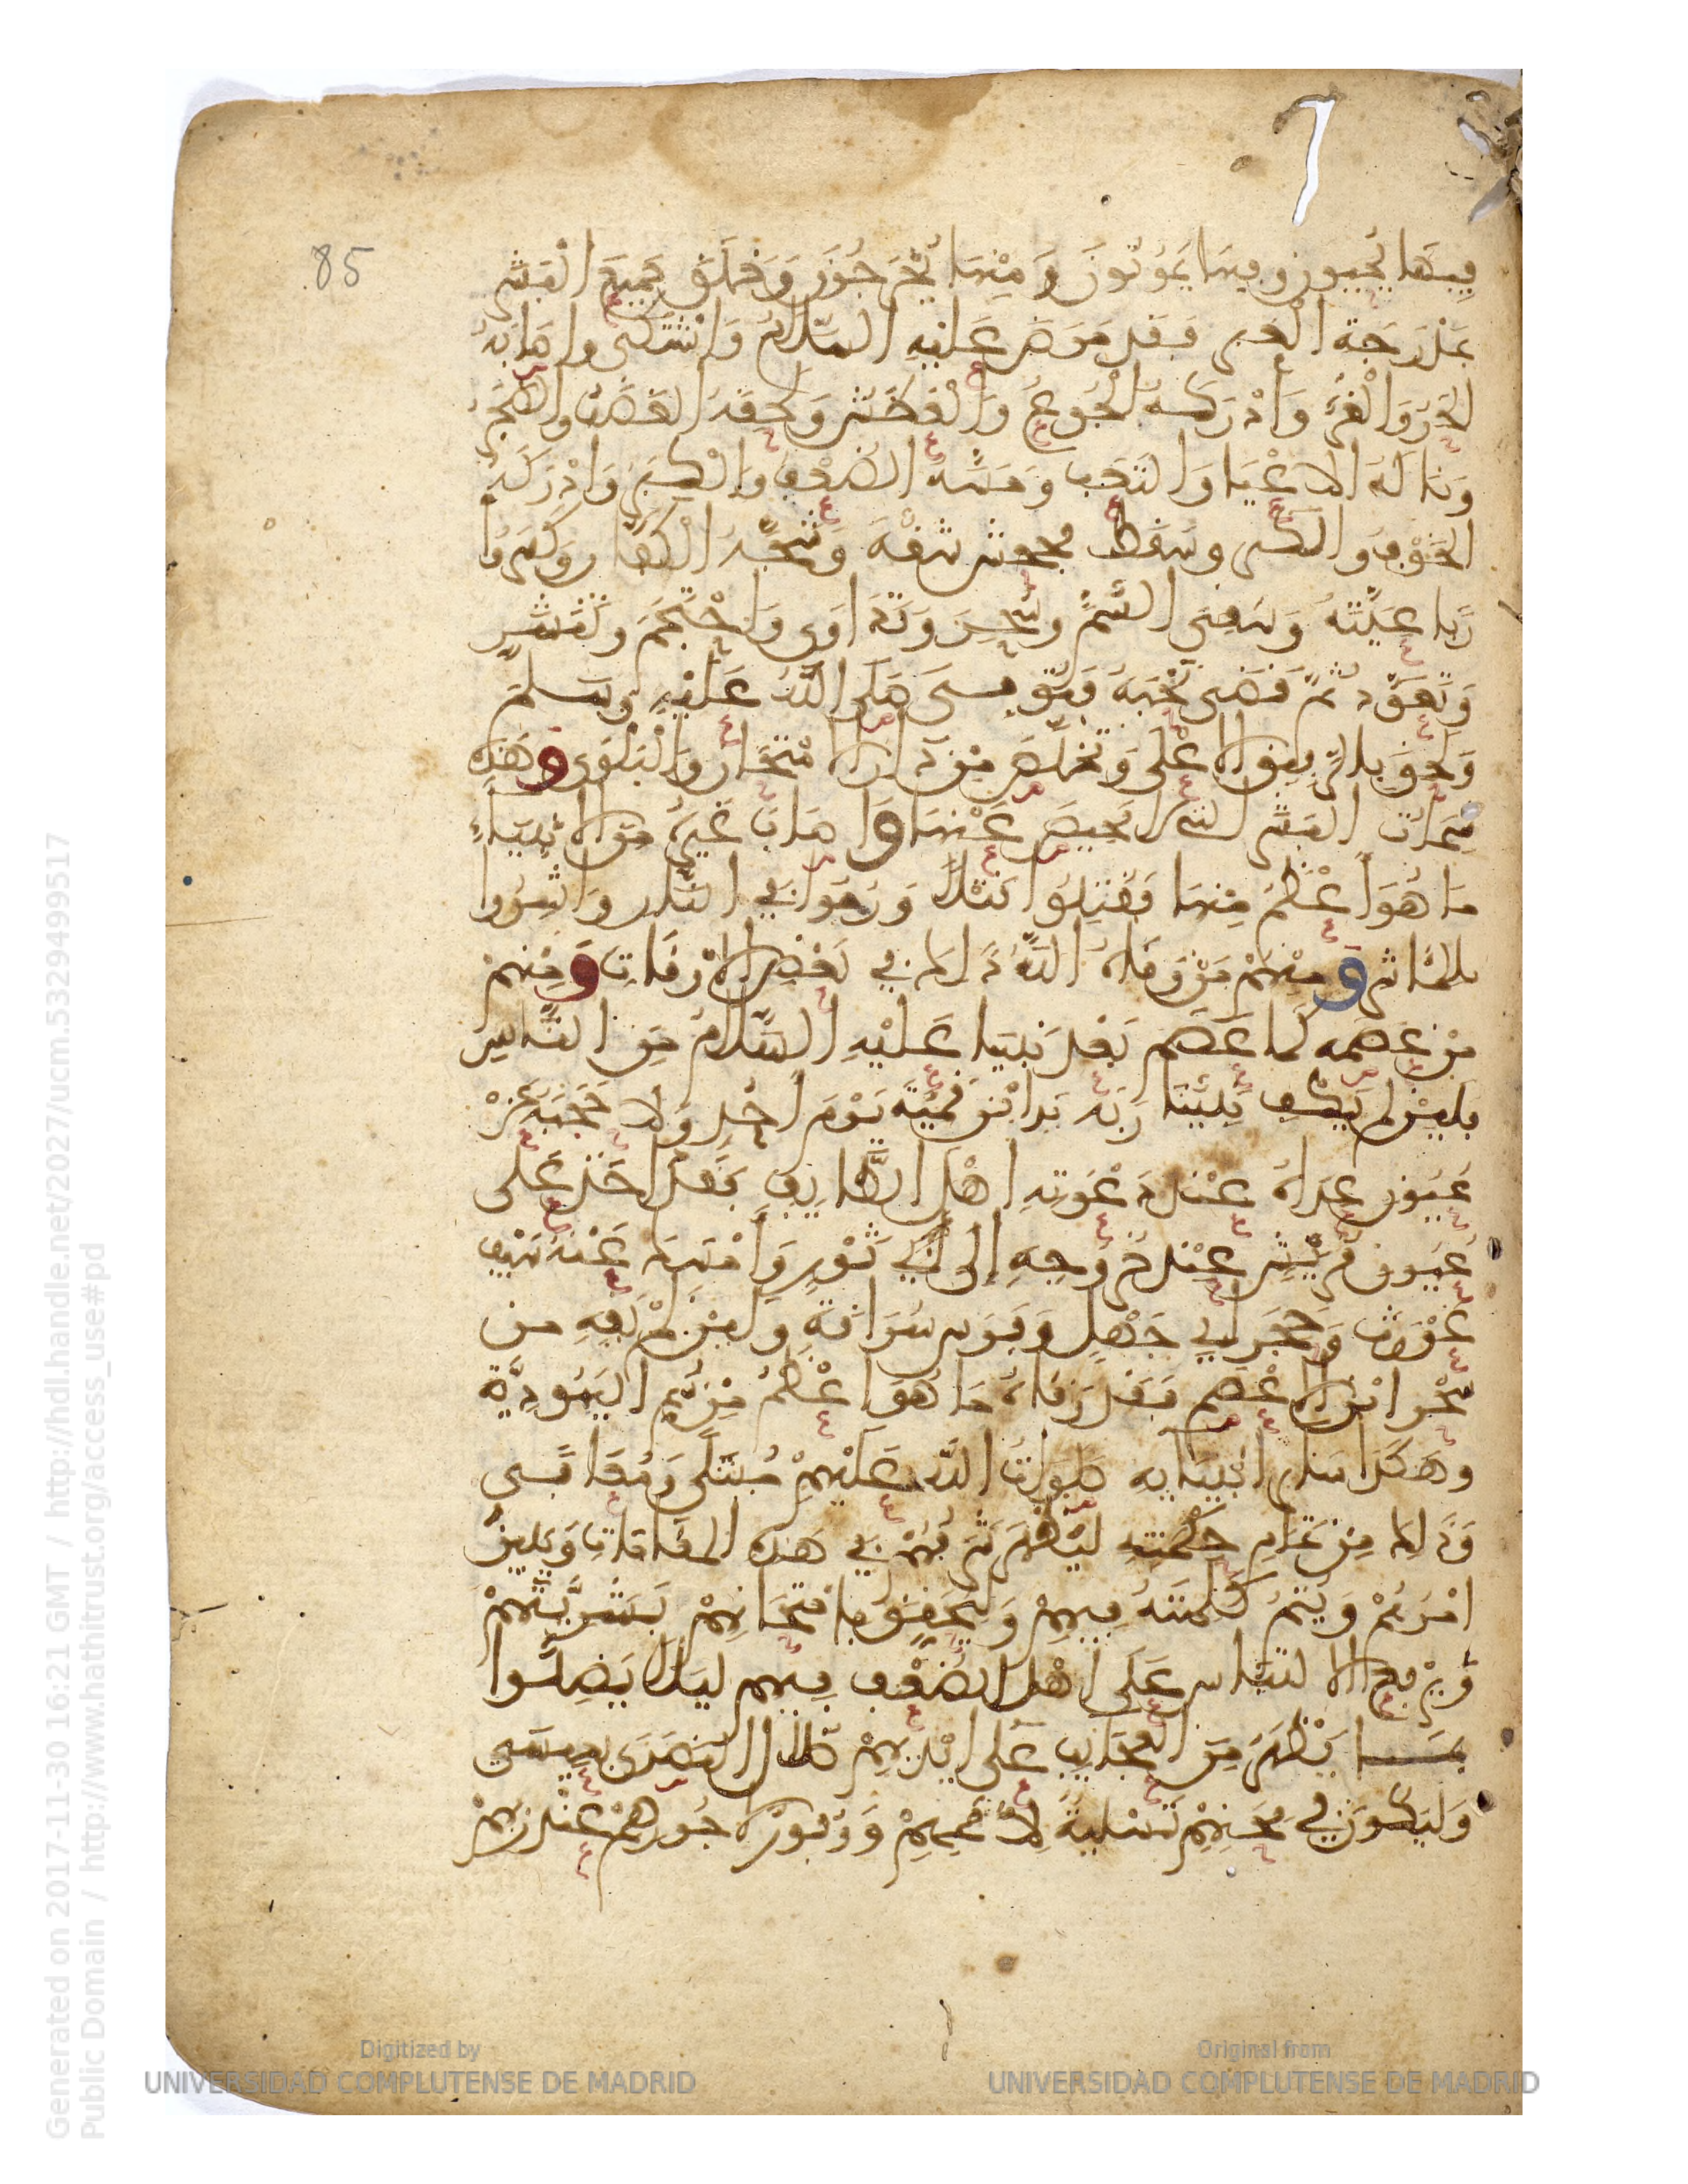 85
فِيهَا يُحْيَون وفيها يَمُوتُونَ وَمِنْهَا يُخْرَجُونَ وَخَلَقَ جَمِيعَ الْبَشَر
بمدرَجة الغير فقد مَرَضَ عَلَيْهِ السَّلَامُ وَاشْتَكَى واصَابَهُ
الحَرُّ وَالْقُرُّ وَأَدْرَكَهُ الْجُوعُ وَالْعَطَشُ وَلَحِقَهُ الغَضَبُ والضَّجَرُ
وَنَالَهُ الاعْيَا وَالتَعَب وَمَسَّهُ الضُّعْفُ وَالْكِبَرُ وَأَدْرَكَهُ
وسَقَطَ فجحش شقّه وَشَجَّهُ الْكُفَّار وَكَسَرُوا
رَبَاعِيَّتَهُ وَسُقِيَ السُّمَّ وسُحِرَ وَتَدَاوَى وَاحْتَجَمَ وتنَشَّر
وَتَعَوَّذَ ثُمَّ قَضَى نَحْبَهُ فَتُوُفّيَ صَلَّى اللَّهُ عَلَيْهِ وسلم
وَلَحِقَ بالرَّفِيق الاعْلَى وَتَخَلَّصَ مِنْ دَار الامْتِحَان وَالْبَلْوَى وَهَذِهِ
سِمَات البَشَر التي لا مَحِيصَ عَنْهَا وَاصَابَ غَيْرَهُ مِنَ الانْبِيَاءِ
مَا هُوَ أَعْظَمُ مِنْهَا فَقُتِلُوا قَتْلاً وَرُمُوا فِي النَّار وَاشِرُوا
بالمناشر وَمِنْهُمْ مَنْ وَقَاهُ اللَّهُ ذَلِكَ في بَعْضِ الاوْقَات وَمِنْهُمْ
مَنْ عَصَمَه كَمَا عَصَمَ بَعْدُ نَبِيَّنَا عَلَيْهِ السَّلَامُ مِنَ النَّاس
فَلَئِنْ لَمْ يَكْفِ نَبِيَّنَا رَبُّهُ يَد ابْنِ قَمِئَةَ يَوْمَ أُحُدٍ وَلَا حَجَبَهُ عَنْ
عُيُون عِدَاهُ عِنْدَ دَعْوَتِهِ اهْلَ الطَّائِفِ فَلَقَدْ اخَذ عَلَى
عُيُون قُرَيْشٍ عِنْدَ خُرُوجِهِ إِلَى ثَوْرٍ وَأَمْسَكَ عَنْهُ سَيْفَ
غَوْرَث وَحَجَرَ أَبِي جَهْلٍ وَفَرَس سُرَاقَةَ وَلَئِنْ لَمْ يَقِهِ مِن
سِحْر ابْنِ الاعْصَم فَلَقَدْ وَقَاهُ مَا هُوَ اعْظَمُ مِنْ سُمِّ اليَهُودِيَّة
وَهَكَذَا سَائر انبيائه صَلَوَات اللَّهِ عَلَيْهِمْ مُبْتَلًى وَمُعَافًى
وَذَلِكَ مِنْ تَمَامِ حِكْمَتِهِ لِيُظْهِرَ شَرَفَهُمْ فِي هَذِهِ المَقَامَات وَيُبَيِّنَ
امْرَهُمْ وَيُتِمَّ كَلِمَتَهُ فِيهِمْ وَلِيُحَقِّقَ بامْتِحَانِهِمْ بَشَرِيَّتَهُمْ
وَيَرْتَفِعَ الالْتِبَاس عَلَى اهْل الضُّعْف فِيهِم لِيَلَّا يَضِلُّوا
بمَا يَظْهَرُ مِنَ العَجَائِب عَلَى ايْدِيهِمْ ضَلَالَ النَّصَارَى بعِيسَى
وَلِيَكُونَ فِي مِحَنِهِمْ تَسْلِيَةً لأُمَمِهِمْ وَوُفُورُ لاجُورهِمْ عِنْد رَبِّهِمْ
Generated on 2017-11-30 16:21 GMT / http://hdl.handle.net/2027/ucm.5329499517
Public Domain / http://www.hathitrust.org/access_use#pd
Digitized by
UNIVERSIDAD COMPLUTENSE DE MADRID
Original from
UNIVERSIDAD COMPLUTENSE DE MADRID